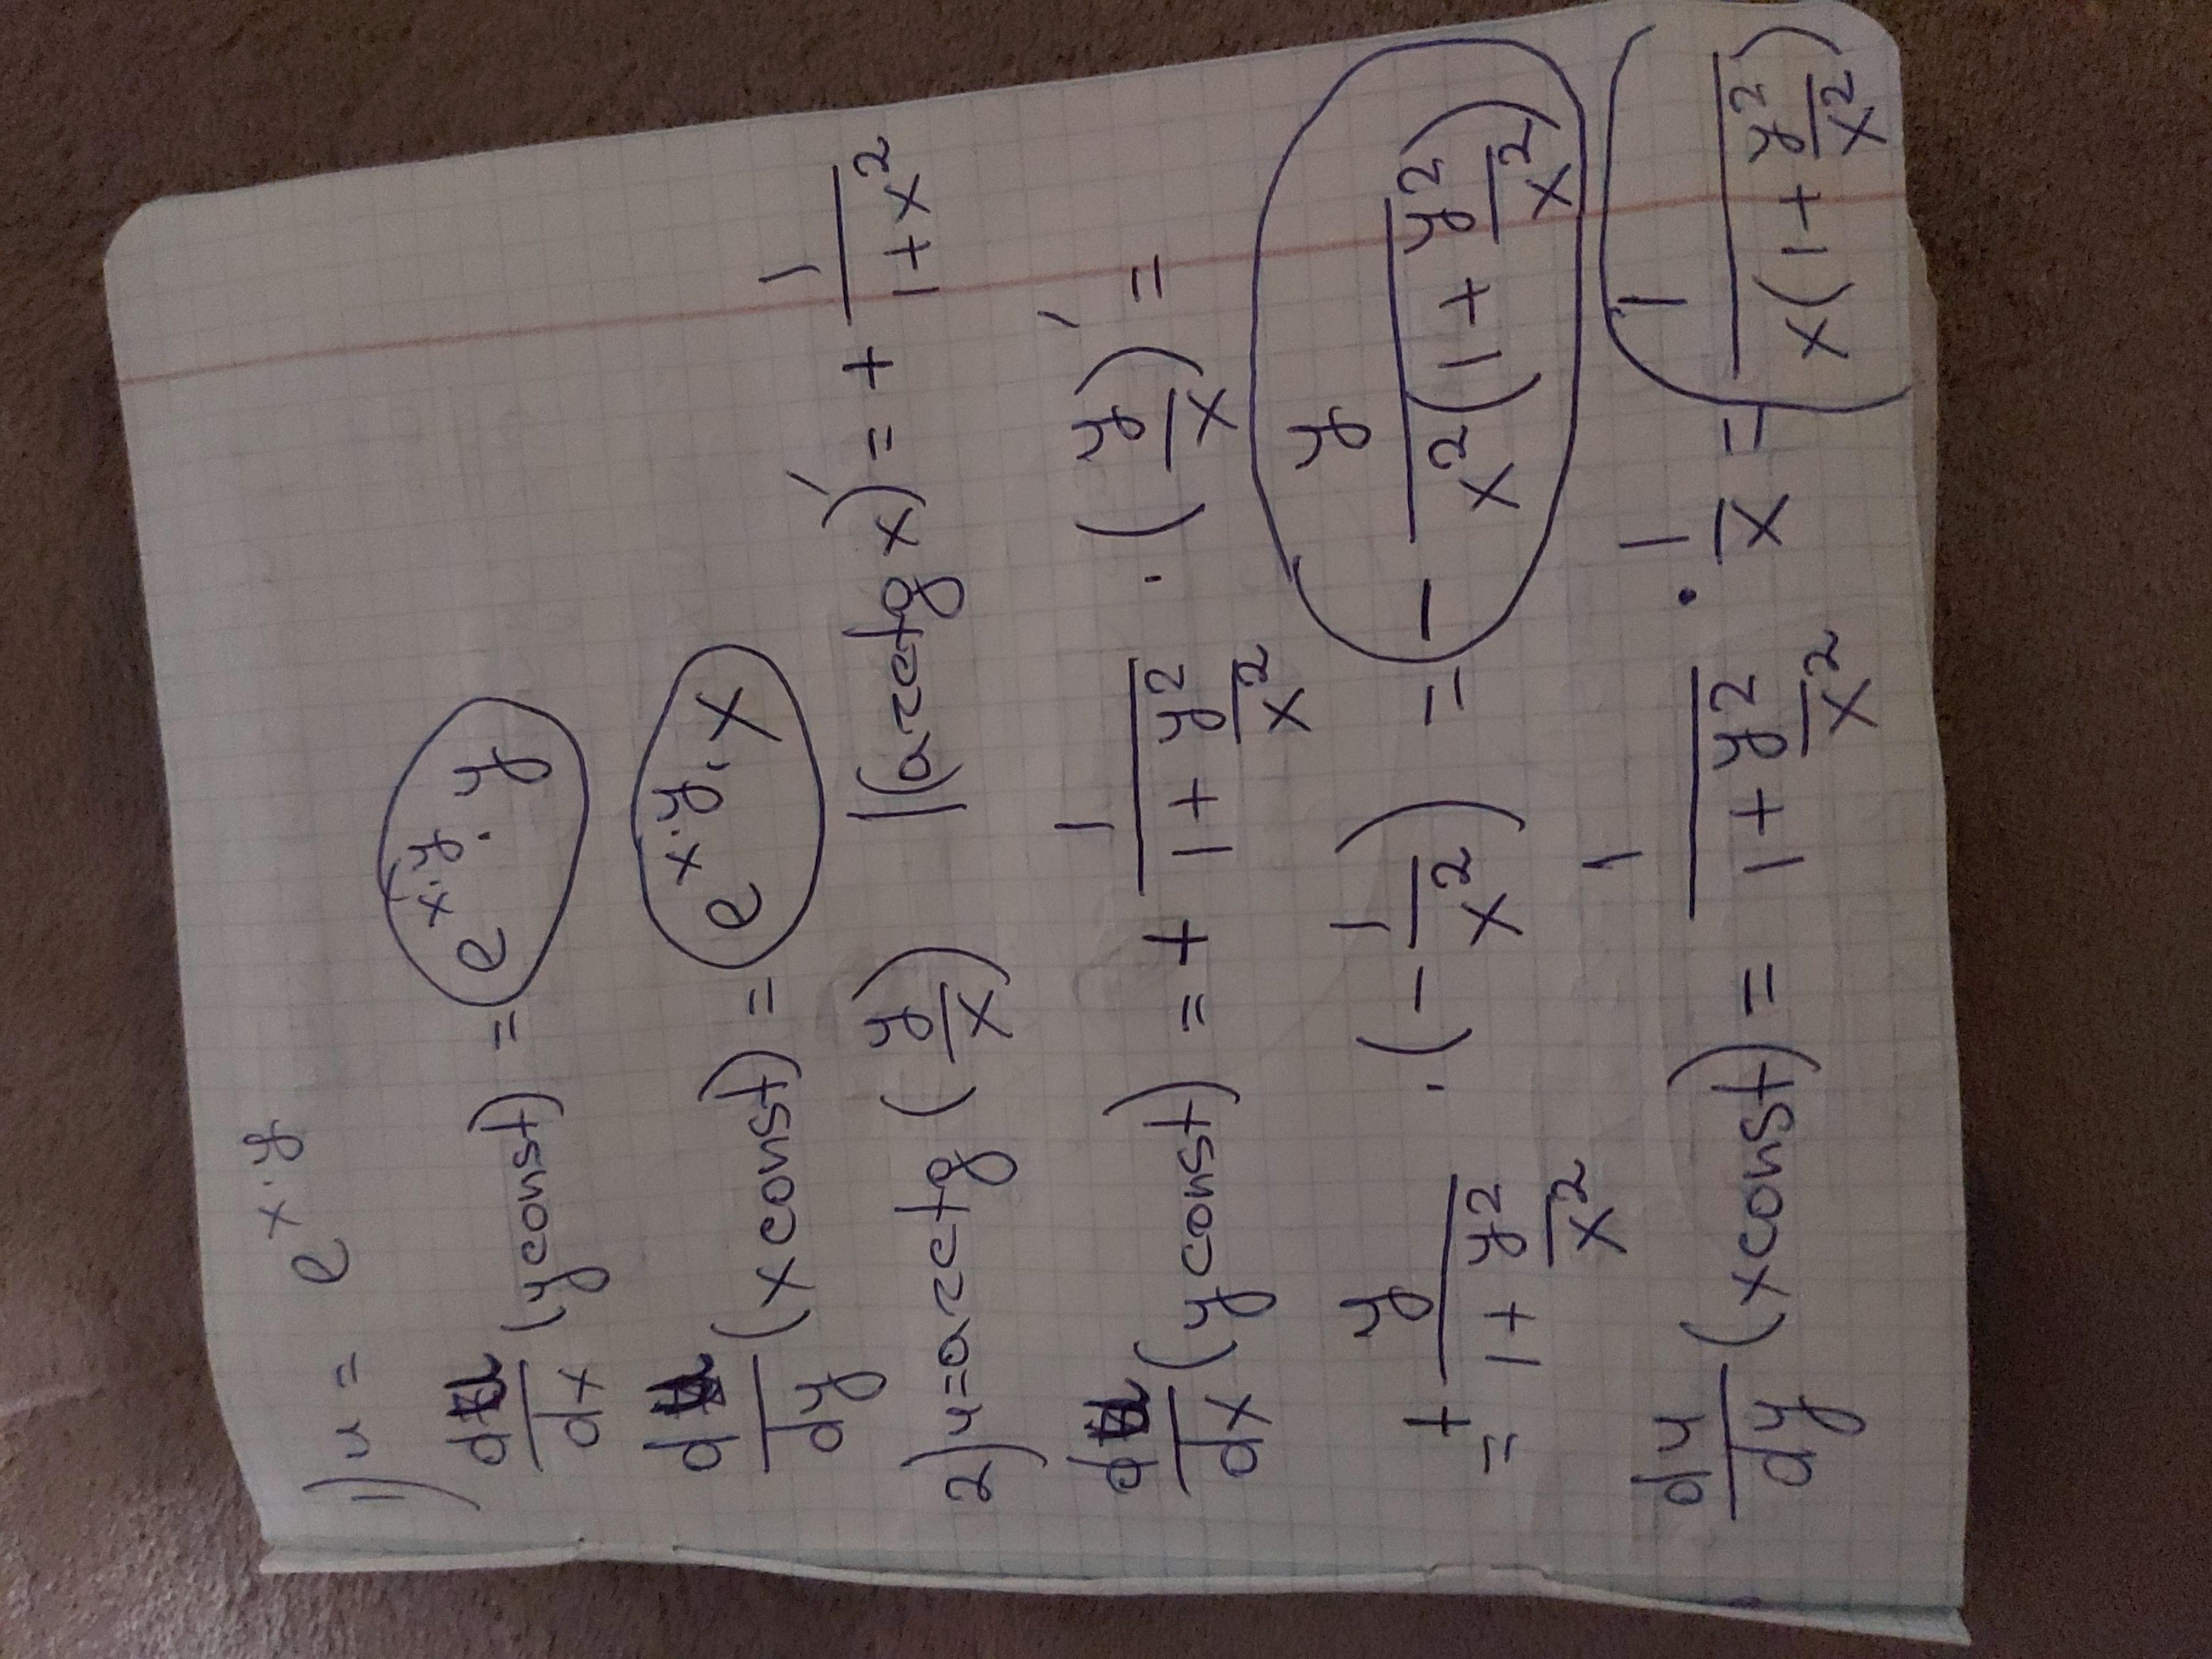 1) u = e^{x·y}
du/dx (y const) = e^{x·y} · y
du/dy (x const) = e^{x·y} · x
2) u = arctg (y/x) | (arctg x)' = + 1/(1+x²)
du/dx (y const) = + 1/(1 + y²/x²) · (y/x)' =
= + y/(1 + y²/x²) · (- 1/x²) = - y/(x²(1 + y²/x²))
du/dy (x const) = 1/(1 + y²/x²) · 1/x = 1/(x(1 + y²/x²))